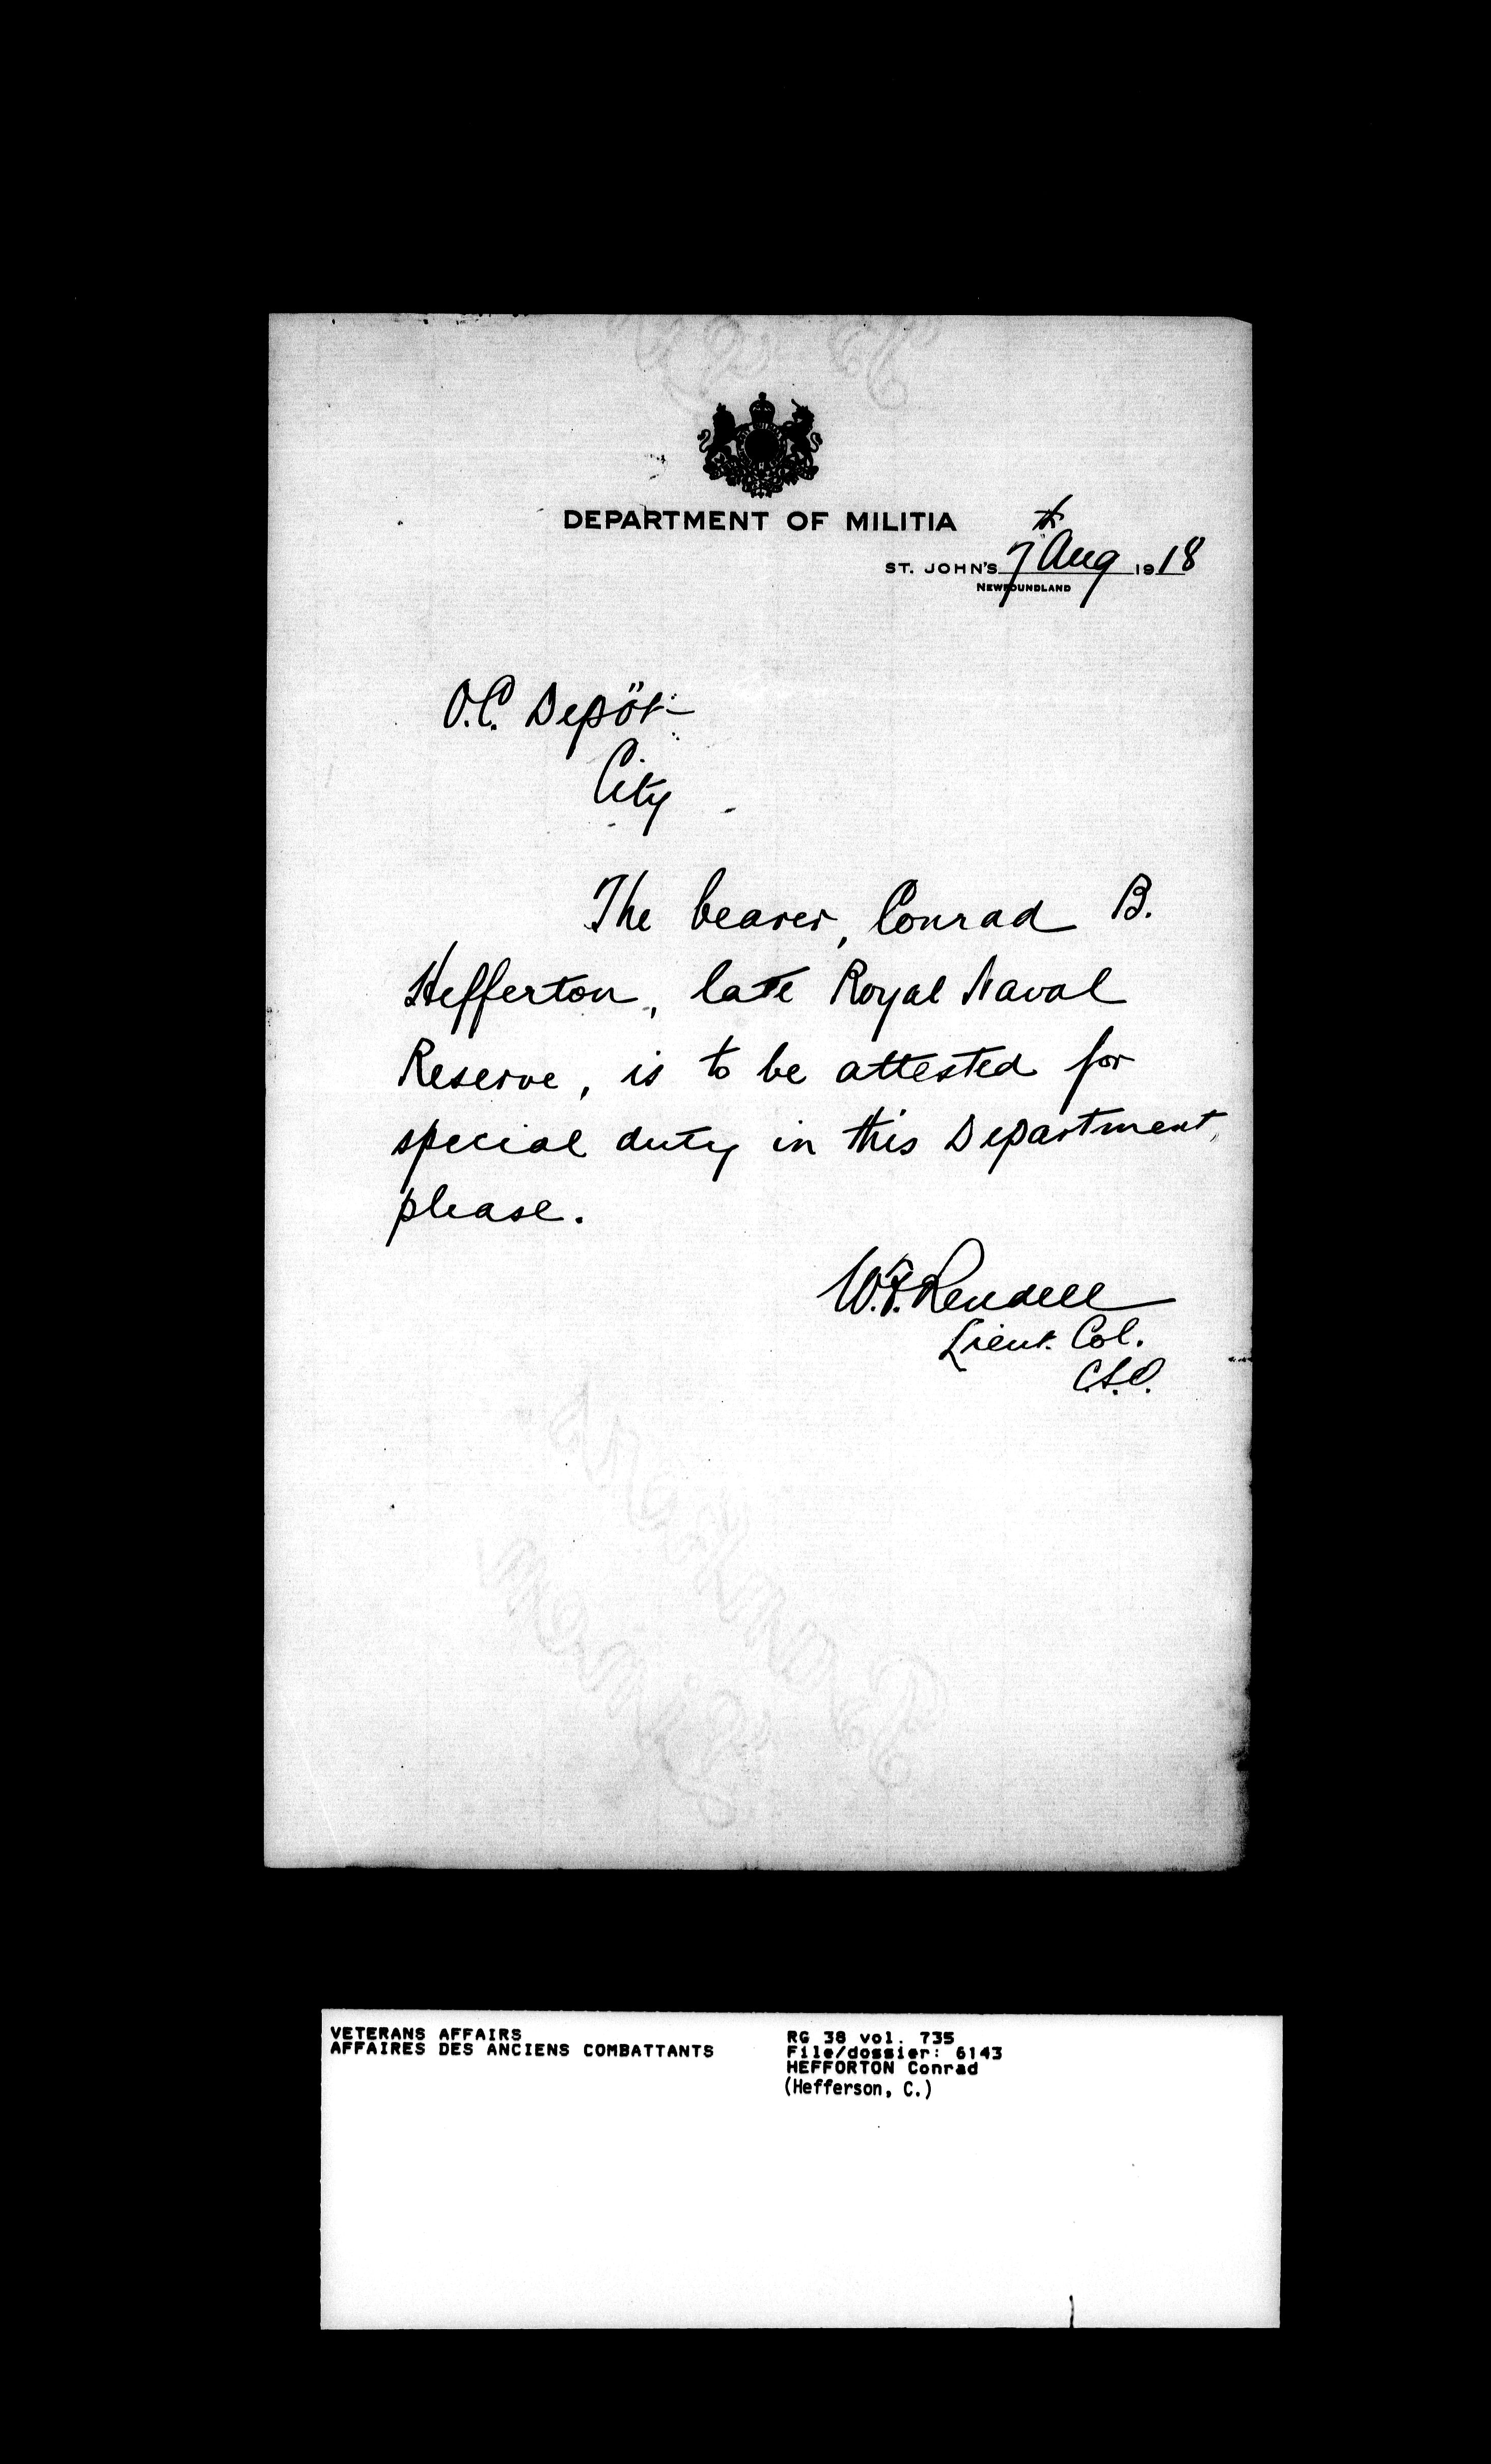 DEPARTMENT OF MILITIA
ST. JOHN'S 7th Aug 1918
NEWFOUNDLAND
O.C. Depôt
City
The bearer, Conrad B.
Hefferton, late Royal Naval
Reserve, is to be attested for
special duty in this Department,
please.
W.F. Rendell
Lieut. Col.
C.S.O.
VETERANS AFFAIRS
AFFAIRES DES ANCIENS COMBATTANTS
RG 38 vol. 735
File/dossier: 6143
HEFFORTON Conrad
(Hefferson, C.)